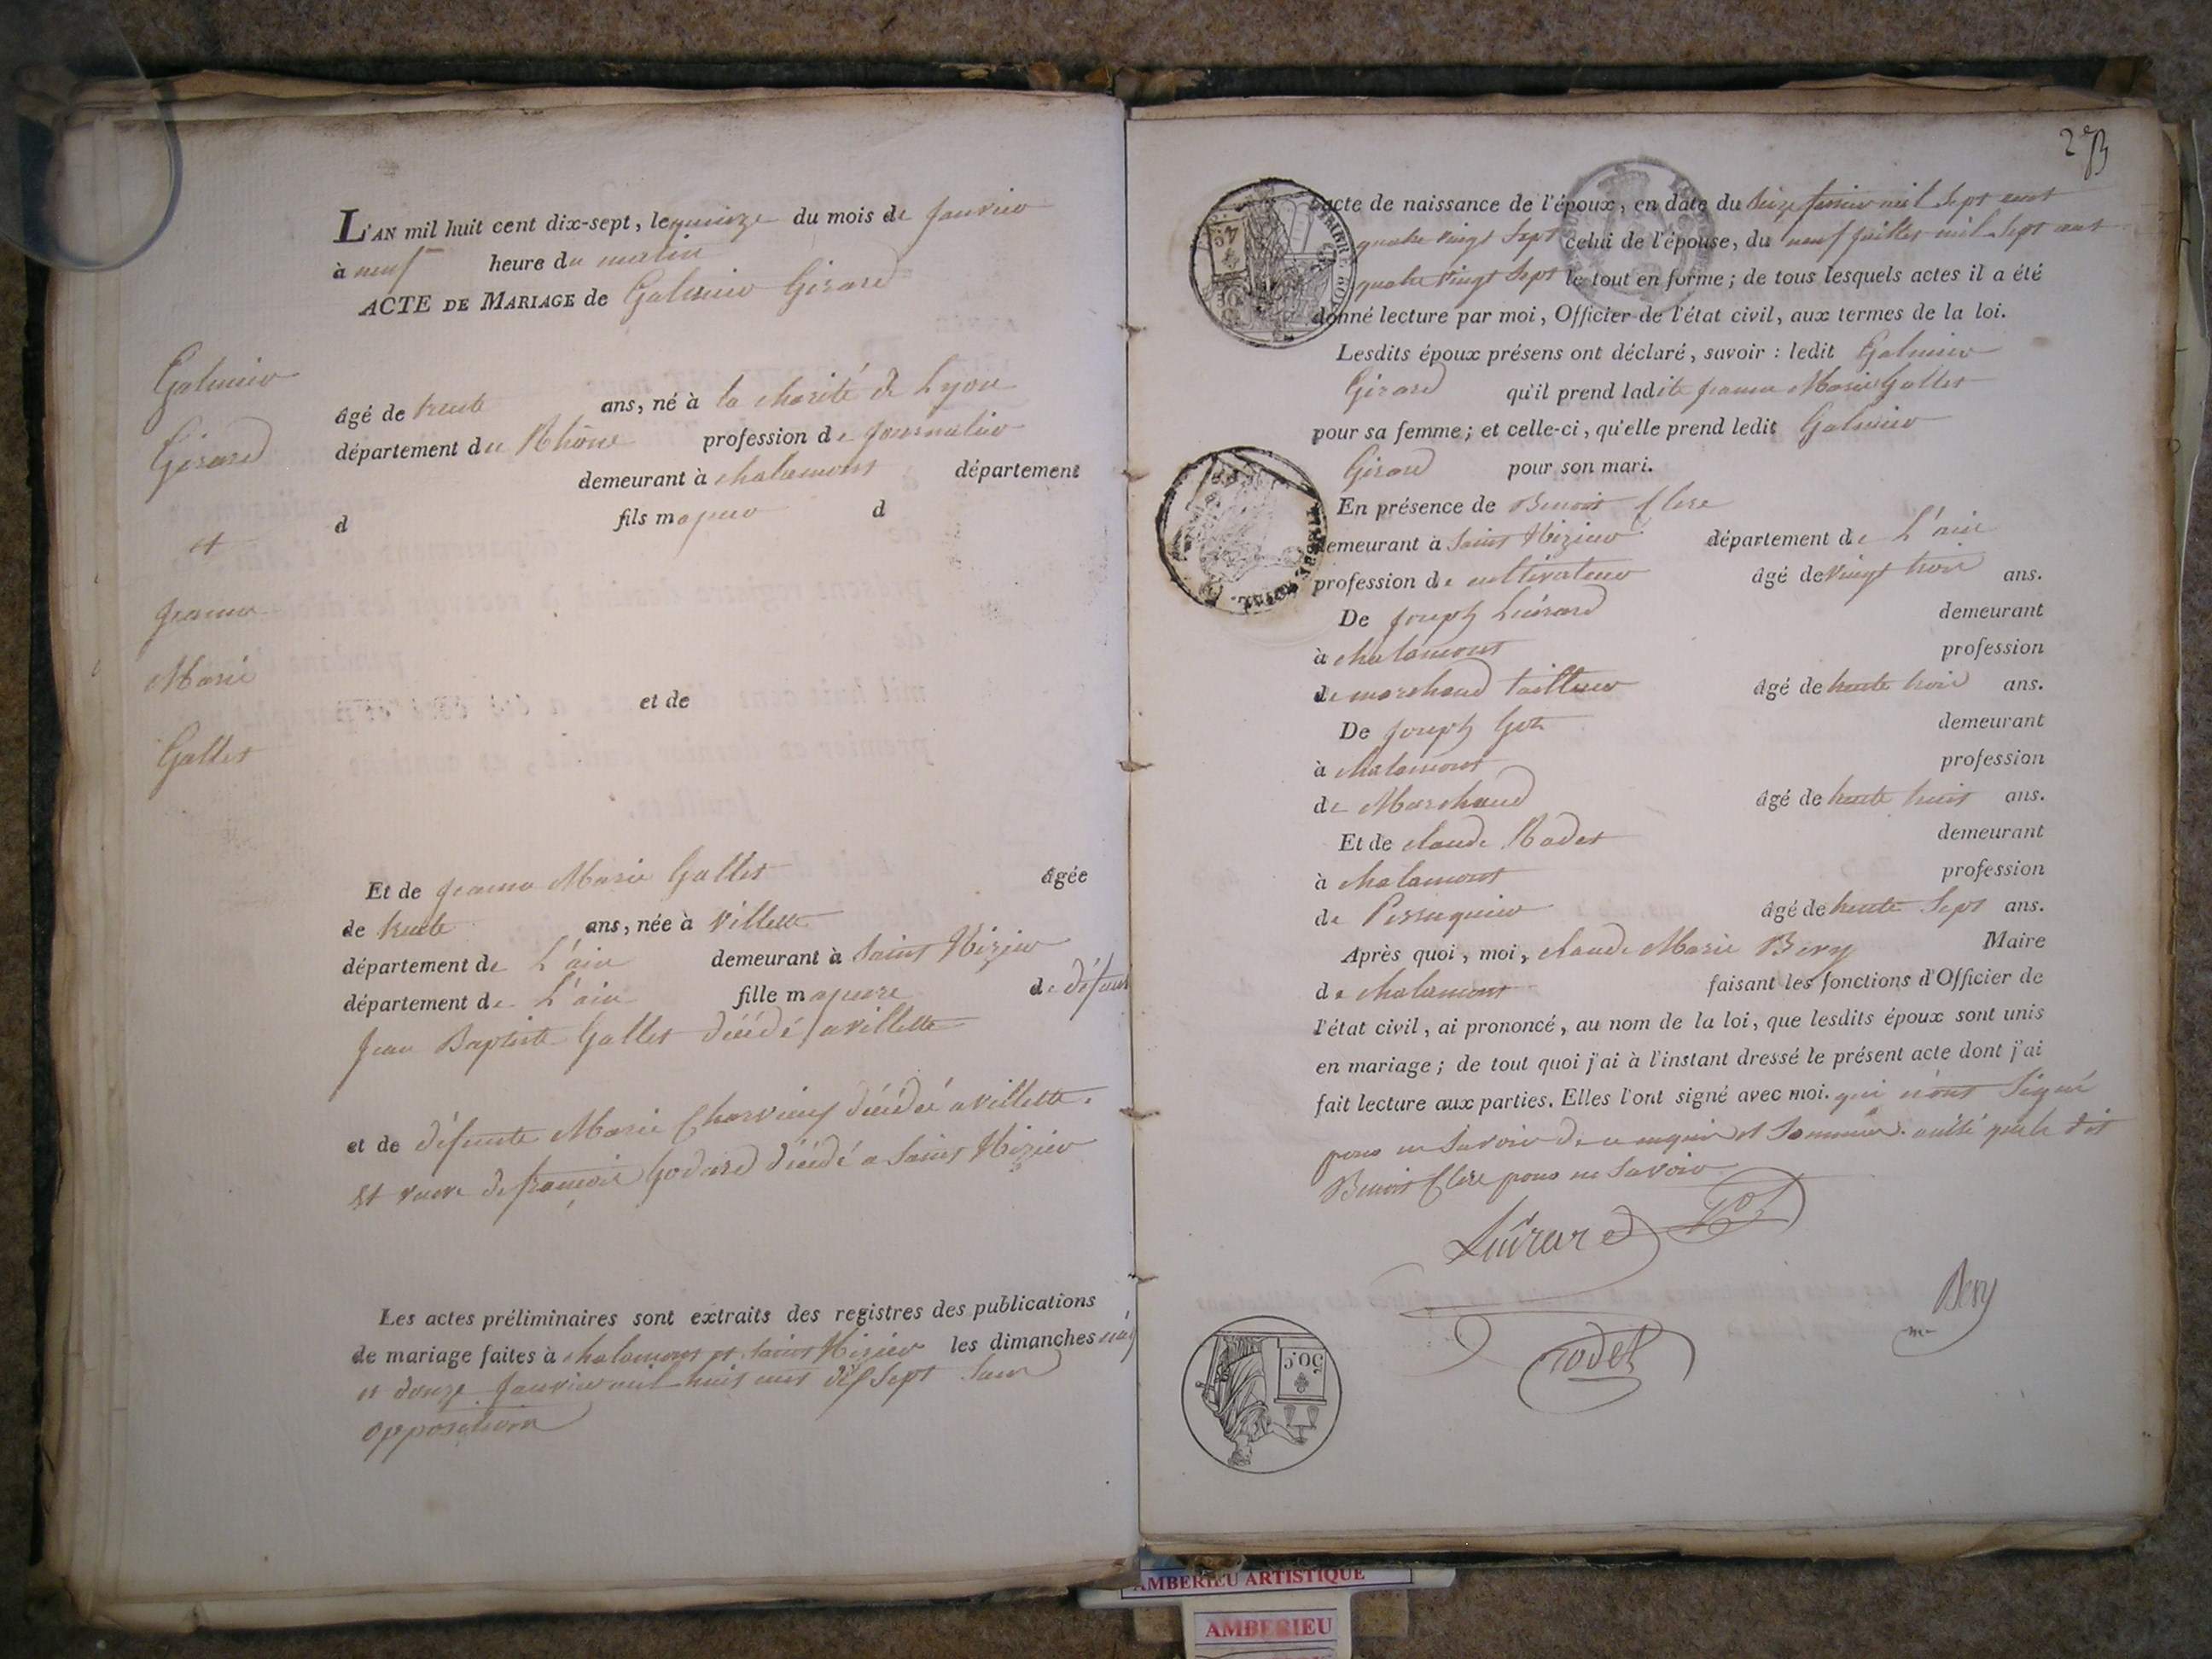 L'AN mil huit cent dix-sept, le quinze du mois de janvier
à neuf heure du matin
ACTE DE MARIAGE de Galmier Girard
Galmier
Girard
et
jeanne
Marie
Gallet
âgé de trente ans, né à la charité de Lyon
département du Rhône profession de journalier
demeurant à chalamont département
d fils majeur d
et de
Et de jeanne Marie Gallet âgée
de trente ans, née à villette
département de L'ain demeurant à Saint Nizier
département de L'ain fille majeure de défunt
jean Baptiste Gallet décédé a villette
et de défunte Marie Charvieux décédée a villette.
Et veuve de françois Godard décédé a Saint Nizier
Les actes préliminaires sont extraits des registres des publications
de mariage faites à chalamont et Saint Nizier les dimanches
et douze janvier mil huit cent dix Sept Sans
opposition
2e
l'acte de naissance de l'époux, en date du Seize février mil Sept cent
quatre vingt Sept celui de l'épouse, du neuf juillet mil Sept cent
quatre vingt Sept le tout en forme; de tous lesquels actes il a été
donné lecture par moi, Officier de l'état civil, aux termes de la loi.
Lesdits époux présens ont déclaré, savoir : ledit Galmier
Girard qu'il prend ladite jeanne Marie Gallet
pour sa femme; et celle-ci, qu'elle prend ledit Galmier
Girard pour son mari.
En présence de Benoit Clere
demeurant à Saint Nizier département de L'ain
profession de cultivateur âgé de vingt trois ans.
De joseph Luirard demeurant
à chalamont profession
de marchand tailleur âgé de trente trois ans.
De joseph Got demeurant
à chalamont profession
de Marchand âgé de trente huit ans.
Et de claude Rodet demeurant
à chalamont profession
de Perruquier âgé de trente Sept ans.
Après quoi, moi, claude Marie Bery Maire
de chalamont faisant les fonctions d'Officier de
l'état civil, ai prononcé, au nom de la loi, que lesdits époux sont unis
en mariage; de tout quoi j'ai à l'instant dressé le présent acte dont j'ai
fait lecture aux parties. Elles l'ont signé avec moi. qui n'ont Signé
pour ne Savoir de ce enquis et Sommés. ainsi que le dit
Benoit Clere pour ne Savoir
Luirard Got
Bery
me
rodet
50 c
AMBERIEU ARTISTIQUE
AMBERIEU